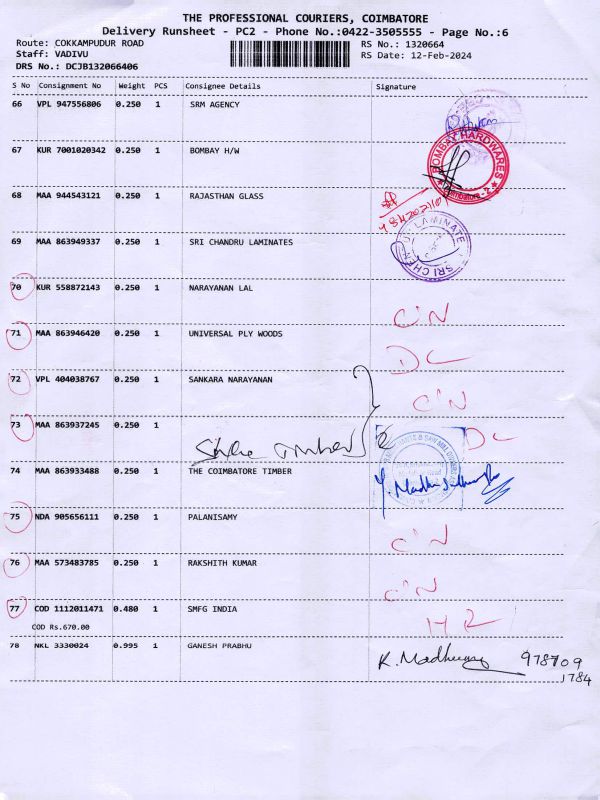 THE PROFESSIONAL COURIERS, COIMBATORE
Delivery Runsheet - PC2 - Phone No.:0422-3505555 - Page No.:6
Route: COKKAMPUDUR ROAD RS No.: 1320664
Staff: VADIVU RS Date: 12-Feb-2024
DRS No.: DCJB132066406
S No Consignment No Weight PCS Consignee Details Signature
66 VPL 947556806 0.250 1 SRM AGENCY
67 KUR 7001020342 0.250 1 BOMBAY H/W
BOMBAY HARDWARES
68 MAA 944543121 0.250 1 RAJASTHAN GLASS
69 MAA 863949337 0.250 1 SRI CHANDRU LAMINATES
70 KUR 558872143 0.250 1 NARAYANAN LAL C'N
71 MAA 863946420 0.250 1 UNIVERSAL PLY WOODS DC
72 VPL 404038767 0.250 1 SANKARA NARAYANAN C'N
73 MAA 863937245 0.250 1 DC
74 MAA 863933488 0.250 1 THE COIMBATORE TIMBER
75 NDA 905656111 0.250 1 PALANISAMY C'N
76 MAA 573483785 0.250 1 RAKSHITH KUMAR C'N
77 COD 1112011471 0.480 1 SMFG INDIA
COD Rs.670.00
78 NKL 3330024 0.995 1 GANESH PRABHU K. Madhu 978709
1784